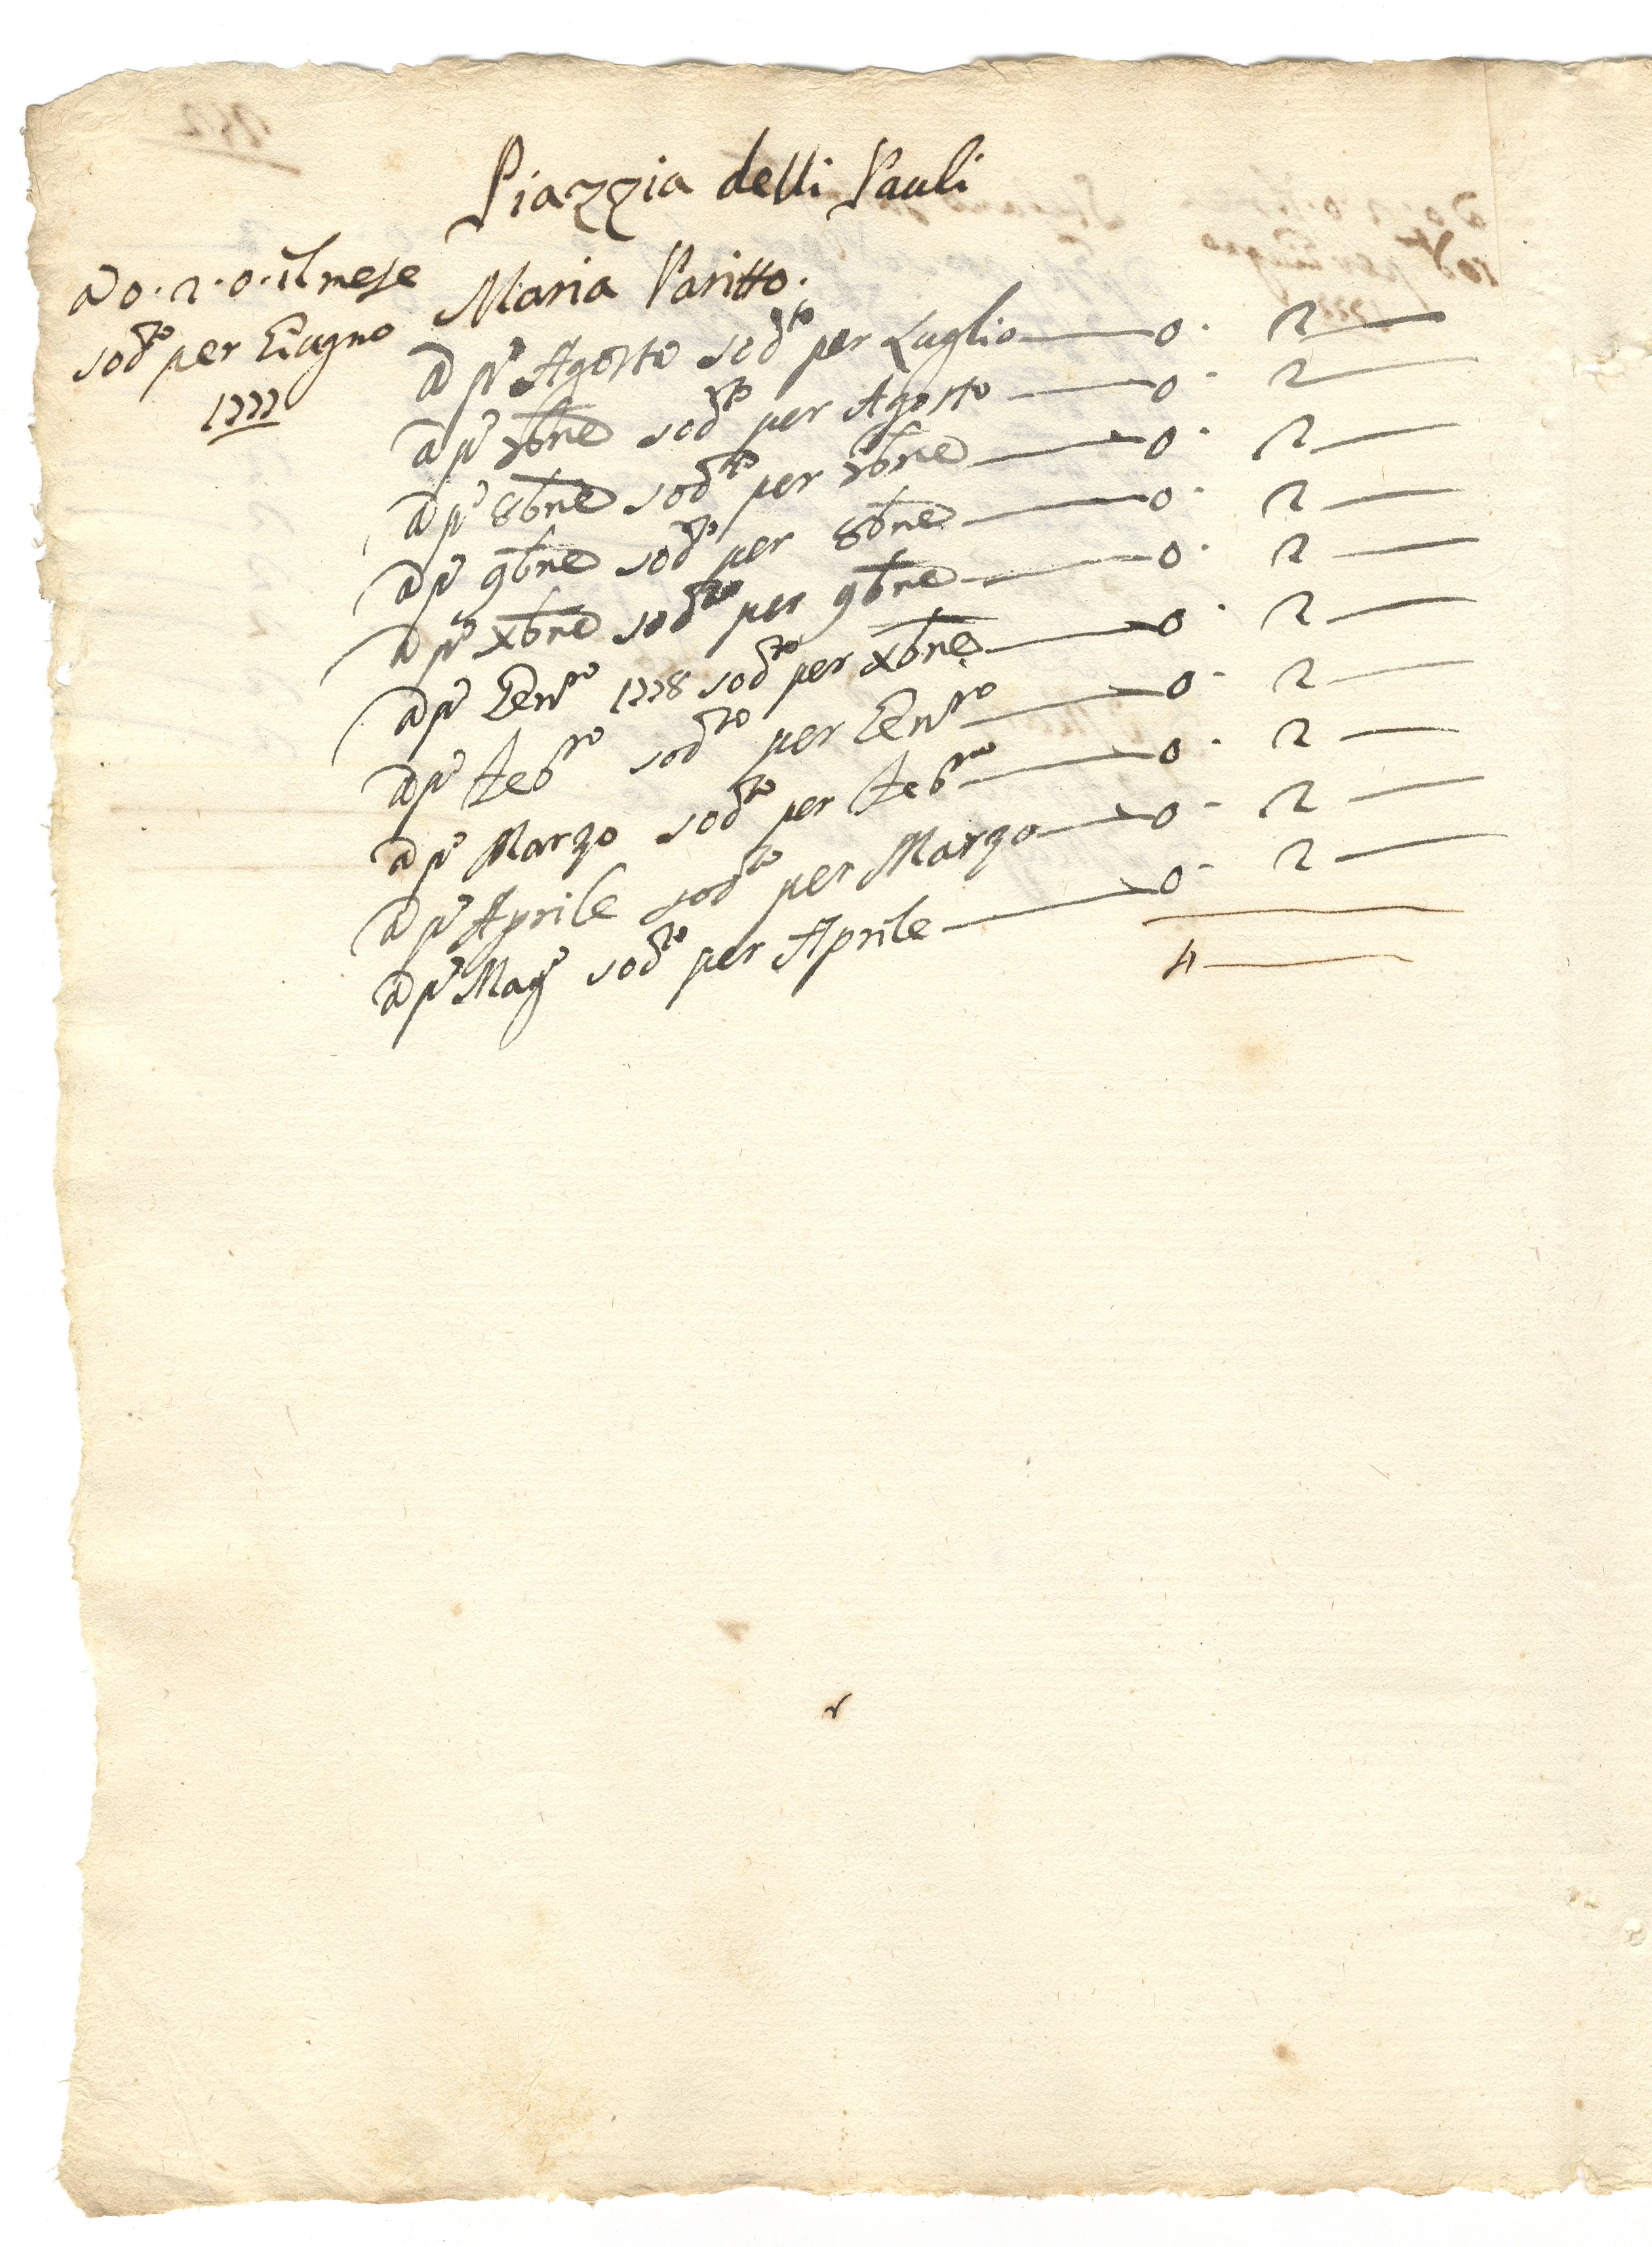 Piazzia delli Pauli
a 0.2.0. il mese
sod.to per Giugno
1777
Maria Paritto.
a p.o Agosto sod.to per Luglio 0. 2
a p.o 7bre sod.to per Agosto 0. 2
a p.o 8bre sod.to per 7bre 0. 2
a p.o 9bre sod.to per 8bre 0. 2
a p.o Xbre sod.to per 9bre 0. 2
a p.o Gen.ro 1778 sod.to per Xbre 0. 2
a p.o Feb.ro sod.to per Gen.ro 0. 2
a p.o Marzo sod.to per Feb.ro 0. 2
a p.o Aprile sod.to per Marzo 0. 2
a p.o Mag.o sod.to per Aprile 0. 2